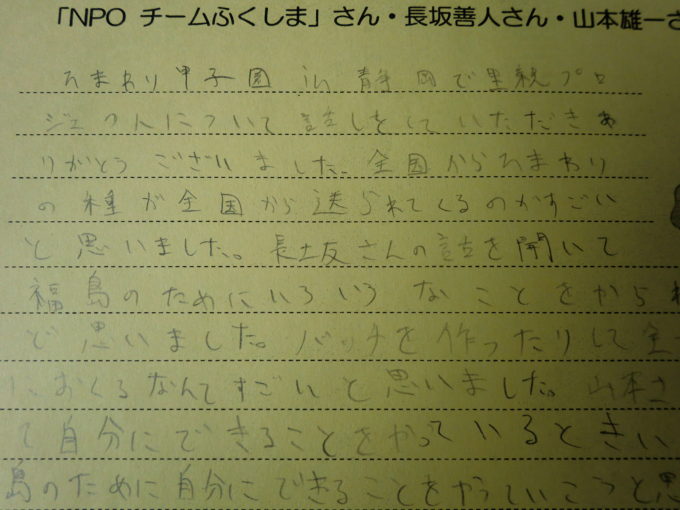 「NPO チームふくしま」さん・長坂善人さん・山本雄一さ
ひまわり甲子園 in 静岡で里親プロ
ジェクトについて話しをしていただきあ
りがとうございました。全国からひまわり
の種が全国から送られてくるのがすごい
と思いました。長坂さんの話を聞いて
福島のためにいろいろなことをから
ど思いました。バッチを作ったりして全
におくるなんてすごいと思いました。山本さ
て自分にできることをやっているときい
島のために自分にできることをやっていこうと思